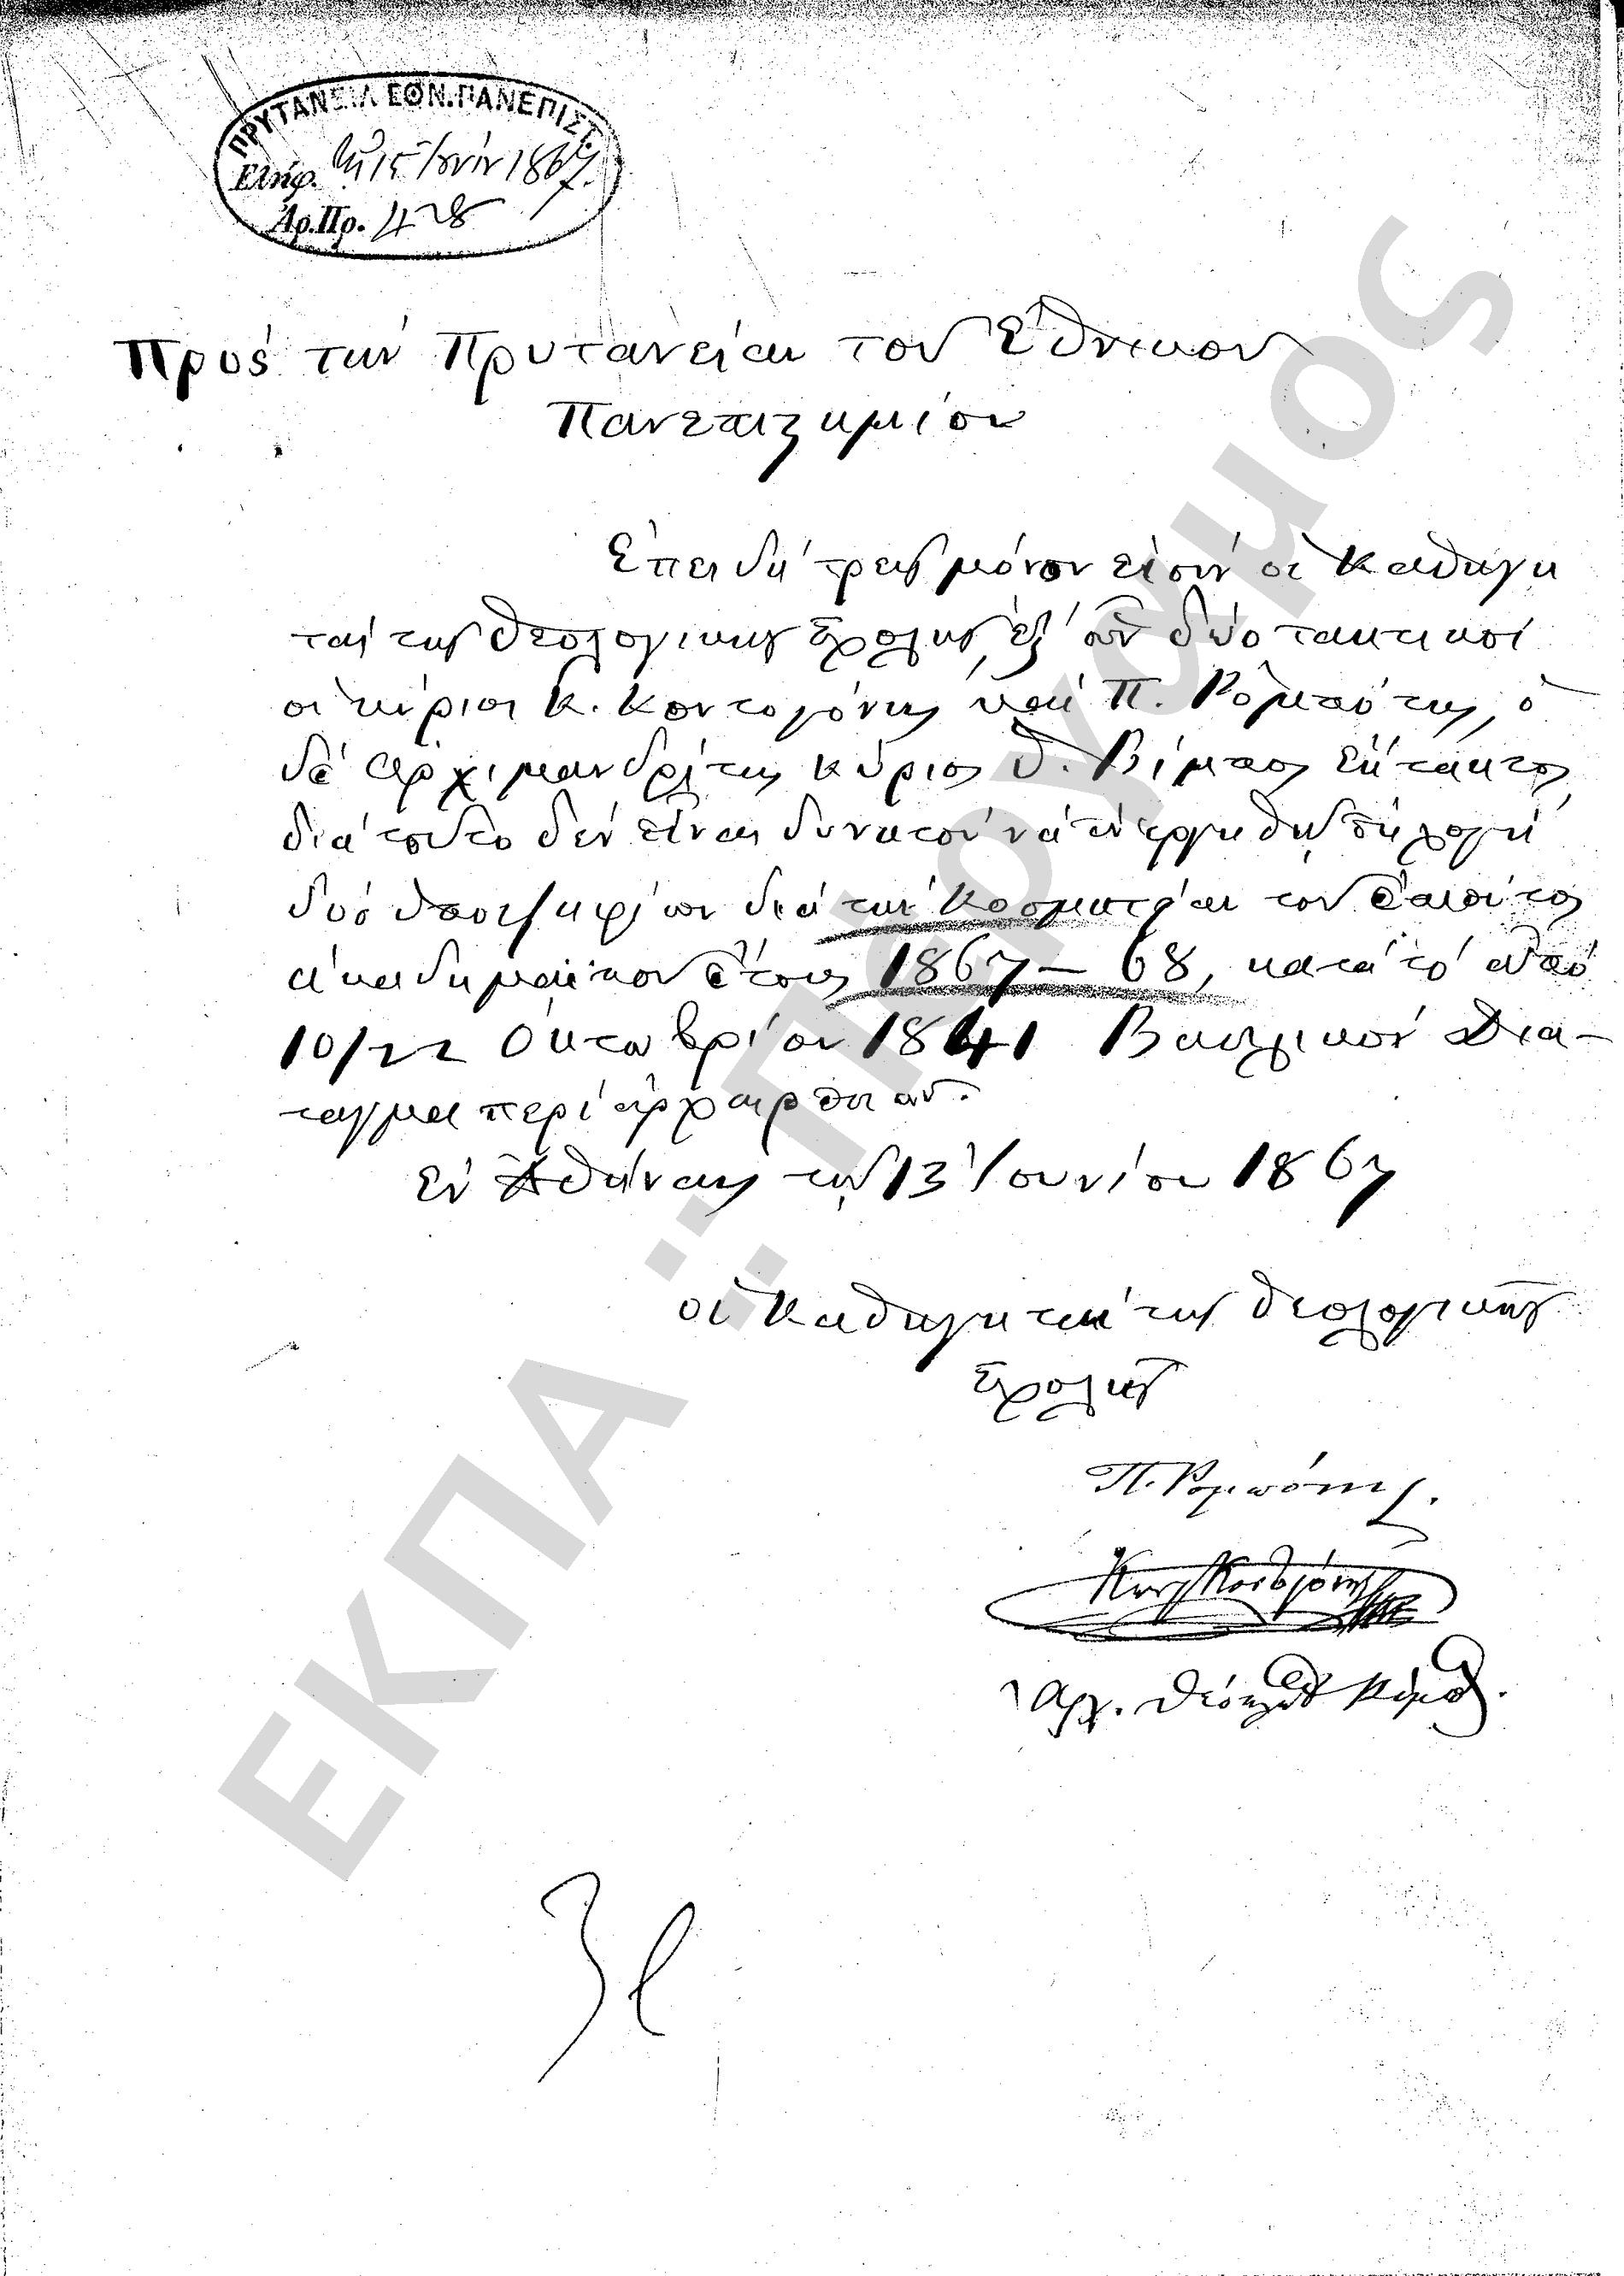 ΠΡΥΤΑΝΕΙΑ ΕΘΝ. ΠΑΝΕΠΙΣΤ.
Ελήφ. τῇ 15 Ἰουνίου 1867.
Ἀρ.Πρ. 428
Πρὸς τὴν Πρυτανείαν τοῦ Ἐθνικοῦ
Πανεπιϛημίου
Ἐπειδὴ τρεῖς μόνον εἰσὶν οἱ Καθηγη
ταὶ τῆς Θεολογικῆς Σχολῆς, ἐξ ὧν δύο τακτικοὶ
οἱ κύριοι Κ. Κοντογόνης καὶ Π. Ῥομπότης, ὁ
δὲ ἀρχιμανδρίτης κύριος Θ. Βίμπος ἔκτακτος,
διὰ τοῦτο δὲν εἶναι δυνατὸν νὰ ἐνεργηθῇ ἐκλογὴ
δύο ὑποψηφίων διὰ τὴν Κοσμητείαν τοῦ
ἀκαδημαϊκοῦ ἔτους 1867–68, κατὰ τὸ ἀπὸ
10/22 Ὀκτωβρίου 1841 Βασιλικὸν Διά-
ταγμα περὶ ἀρχαιρεσιῶν.
Ἐν Ἀθήναις τῇ 13 Ἰουνίου 1867
οἱ Καθηγηταὶ τῆς Θεολογικῆς
Σχολῆς
Π. Ῥομπότης.
Κωνς Κοντογόνης
Ἀρχ. Θεόκλητος Βίμπος.
ΕΚΠΑ "Πέργαμος